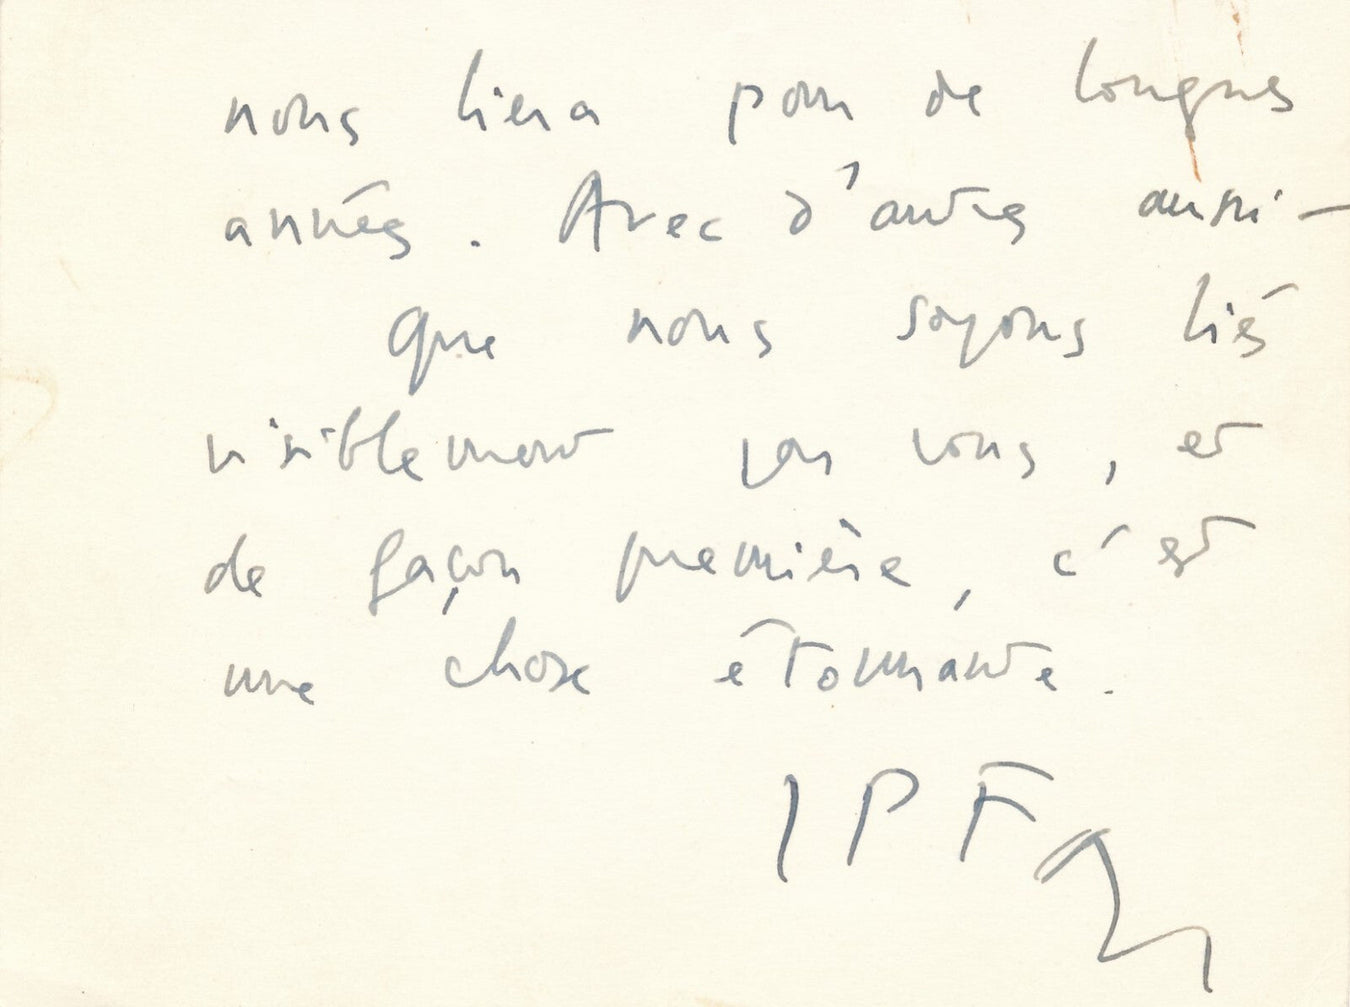 nous liera pour de longues
années. Avec d'autres aussi -
Que nous soyons liés
visiblement par vous, et
de façon première, c'est
une chose étonnante.
JPF